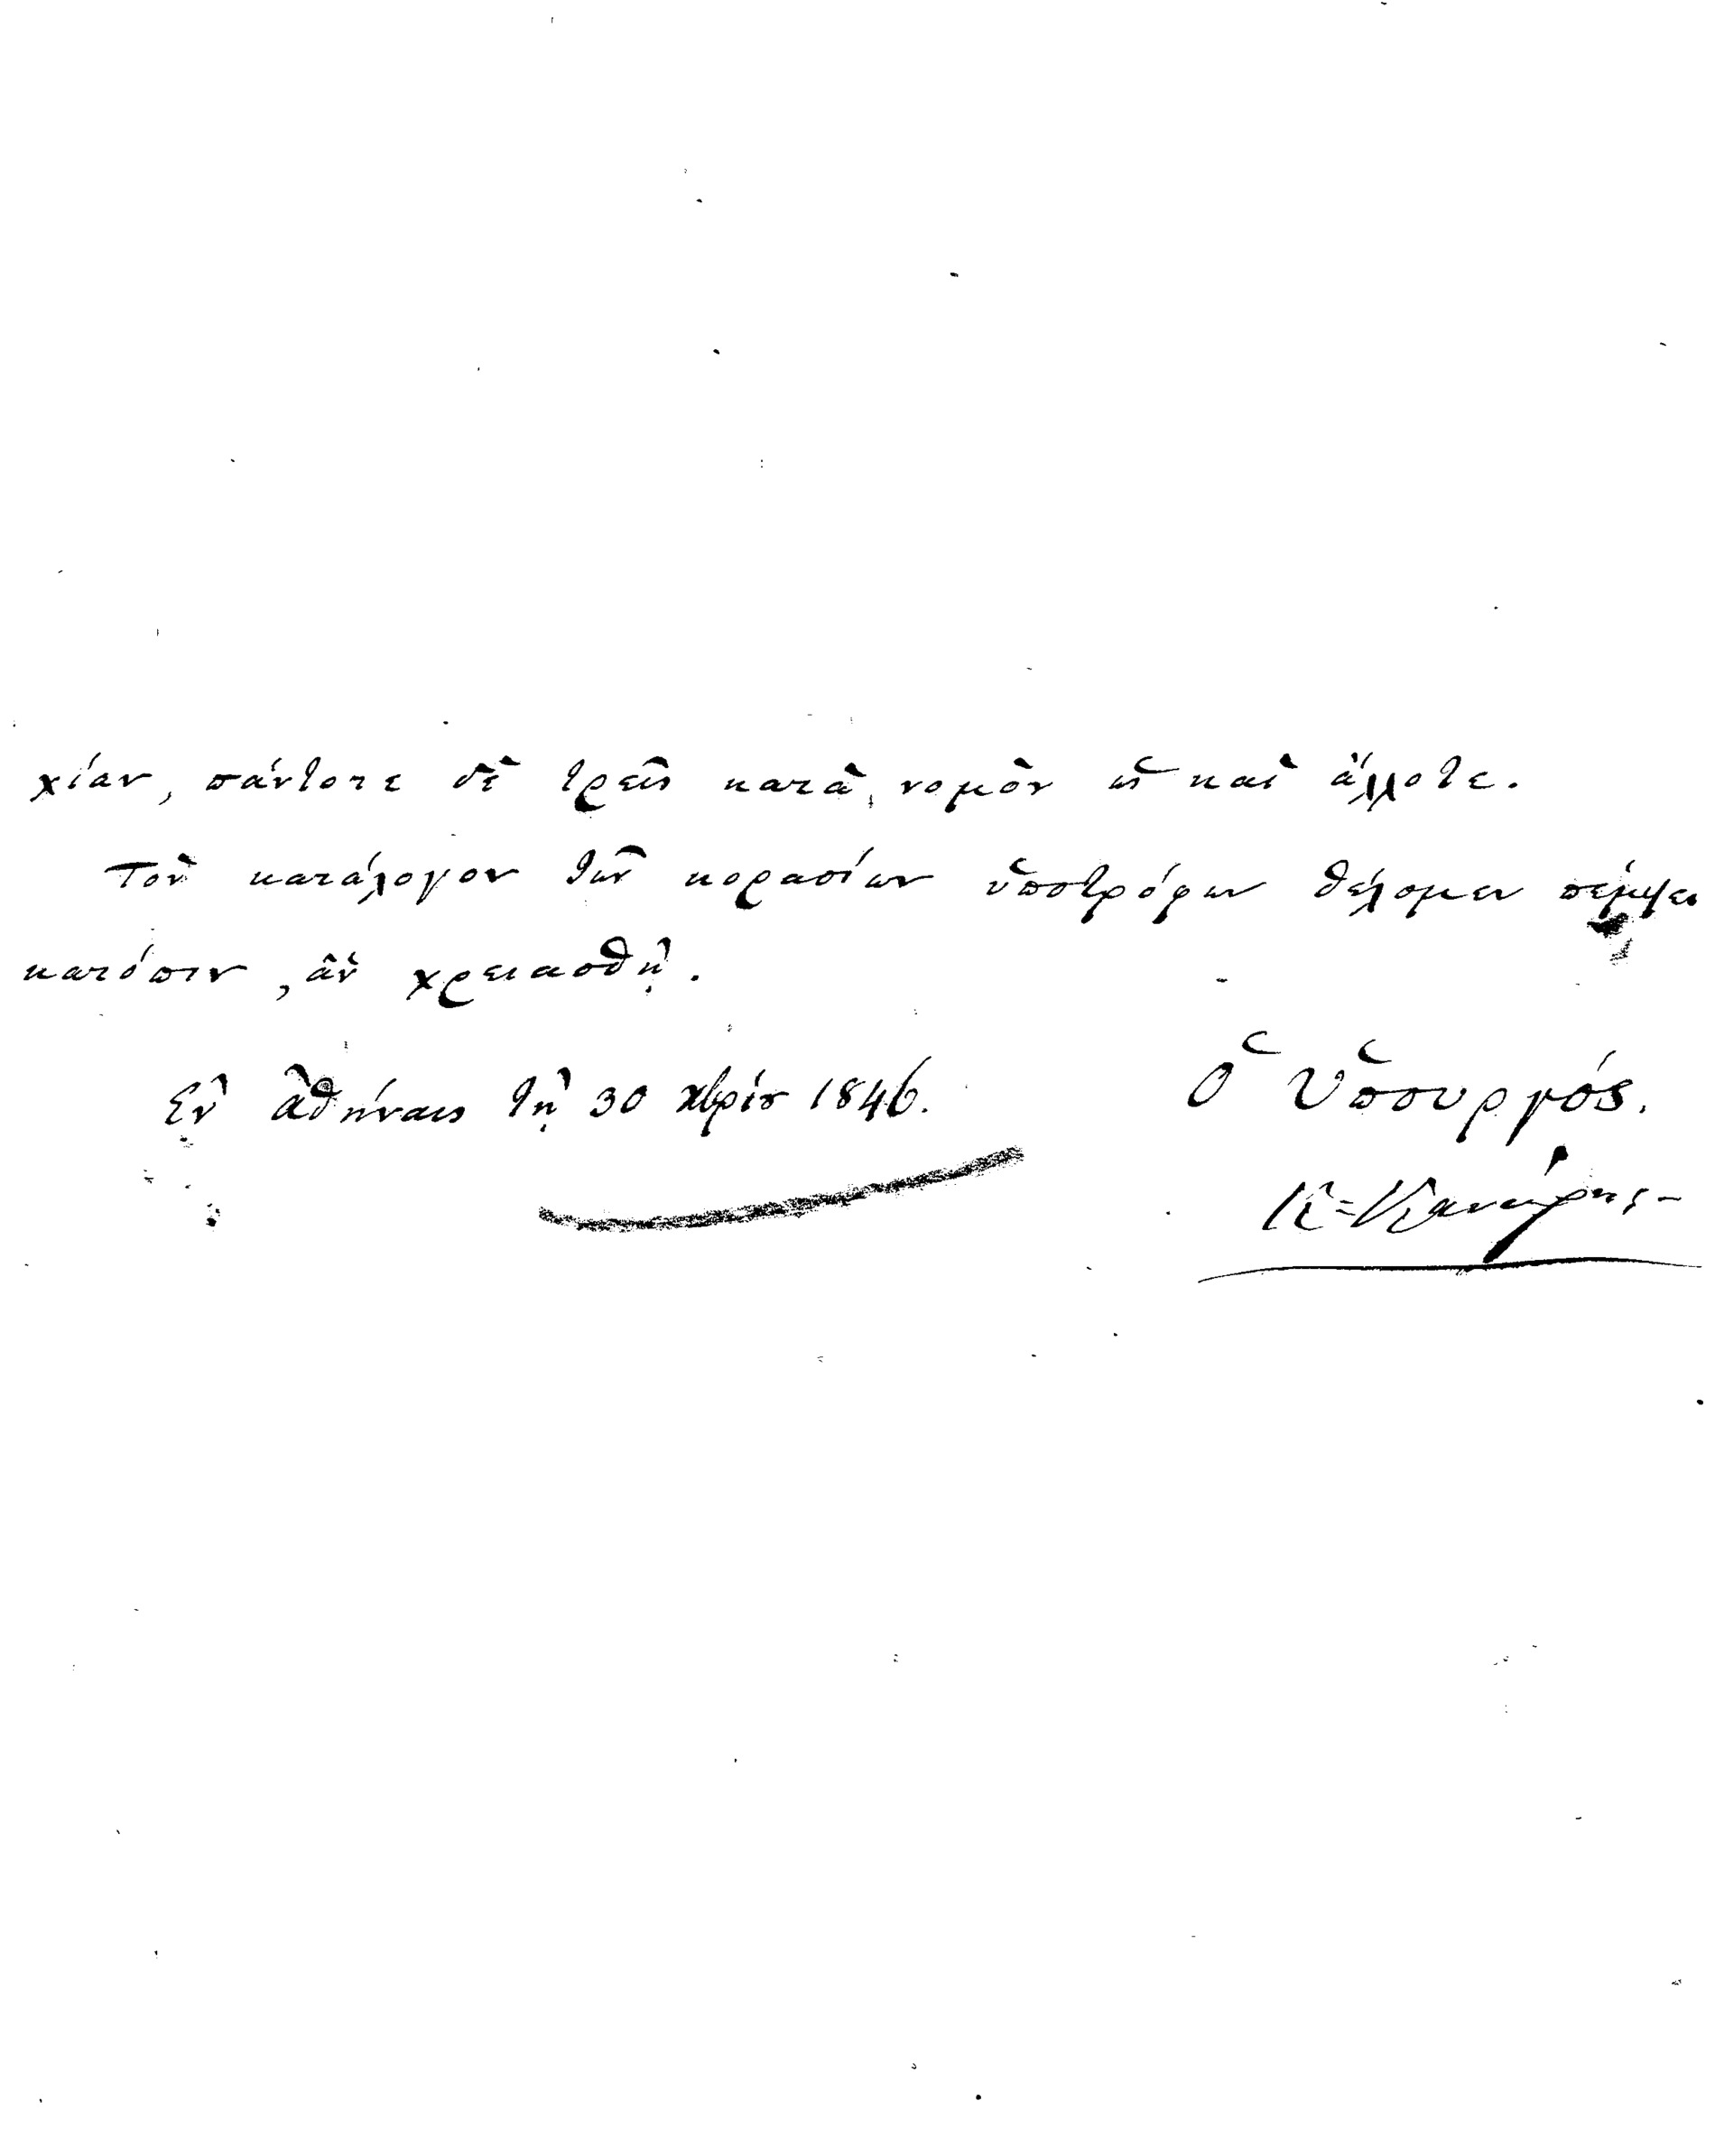 χίαν, πάντοτε δὲ τρεῖς κατὰ νομὸν ὡς καὶ ἄλλοτε.
Τὸν κατάλογον τῶν κορασίων ὑποτρόφων θέλομεν πέμψει
κατόπιν, ἂν χρειασθῇ.
Ἐν Ἀθήναις τῇ 30 Χβρίου 1846.
Ὁ Ὑπουργός.
Κ. Κανάρης